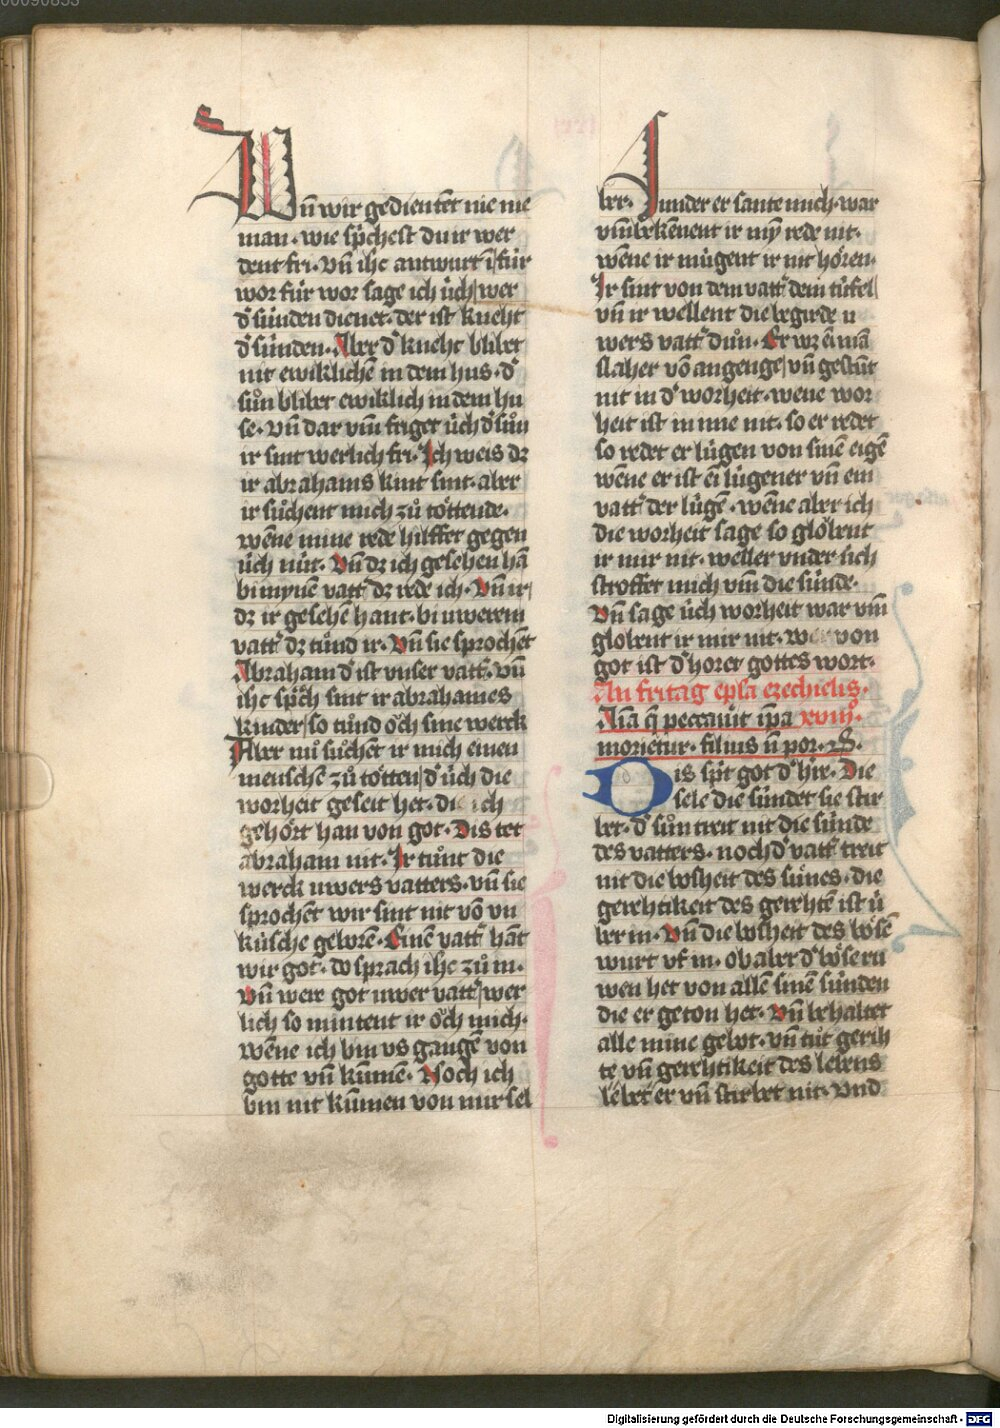 Wñ wir gedientet nie nie
man · wie spͤchest du ir wer
dent fri · Vñ ihc antwurt i᷑ fúr
wor fúr wor sage ich úch wer
d᷑ súnden dienet · der ist kneht
d᷑ súnden · Aber d᷑ kneht blibet
nit ewiklichē in dem hus · d᷑
sůn blibet ewiklich in dem hu
se · vñ dar vm̄ friget úch d᷑ sůn
ir sint werlich fri · Ich weis dz
ir abrahams kint sint · aber
ir sůchent mich zů toͤttende ·
wēne mine rede hilffet gegen
úch nút · Vñ dz ich gesehen hā
bi mynē vatt᷑ dz rede ich · Vñ ir
dz ir gesehē hant · bi uwerem
vatt᷑ dz tůnd ir · Vñ sie sprochēt
Abraham d᷑ ist vnser vatt᷑ · vñ
ihc spͣch sint ir abrahames
kinder so tůnd oͮch sine werck
Aber nů sůchet ir mich einen
menschē zů toͤtten d᷑ úch die
worheit geseit het · die ich
gehoͤrt han von got · Dis tet
abraham nit · Ir tůnt die
werck uwers vatters · vñ sie
sprochēt wir sint nit vō vn
kúsche geborē · Einē vatt᷑ hāt
wir got · do sprach ihc zů in ·
Vñ were got uwer vatt᷑ wer
lich so mintent ir oͮch mich ·
wēne ich bin vs gangē von
gotte vñ kūmē · Noch ich
bin nit kūmen von mir sel
ber · Sunder er sante mich · war
vm̄ bekēnent ir mȳ rede nit ·
wēne ir múgent ir nit hoͤren ·
Ir sint von dem vatt᷑ dem túfel
vñ ir wellent die begirde u
wers vatt᷑ důn · Er wz ein mā
slaher vō angenge vñ gestūt
nit in d᷑ worheit · wene wor
heit ist in ime nit · so er redet
so redet er lúgen von sinē eigē
wēne er ist ei᷑ lúgener vñ ein
vatt᷑ der lúgē · wēne aber ich
die worheit sage so gloͮbent
ir mir nit · weller vnder úch
stroffet mich vm̄ die súnde ·
Vñ sage úch worheit war vm̄
gloͮbent ir mir nit · Wer von
got ist d᷑ horet gottes wort ·
An fritag epl̄a ezechielis ·
Aīa q̄ peccauit ip̄a xviij°
morietur · filius n̄ por ·
Dis sp̄t got d᷑ h᷑re · Die
sele die súndet sie stir
bet · d᷑ sůn treit nit die súnde
des vatters · noch d᷑ vatt᷑ treit
nit die bosheit des súnes · die
gerehtikeit des gerehtē ist ú
ber in · Vñ die bosheit des boͤsē
wurt vf in · ob aber d᷑ boͤse ru
wen het von allē sinē súnden
die er geton het · Vñ behaltet
alle mine gebot · vñ tůt gerih
te vñ gerehtikeit des lebens
lebet er vñ stirbet nit · vnd
Digitalisierung gefördert durch die Deutsche Forschungsgemeinschaft - DFG